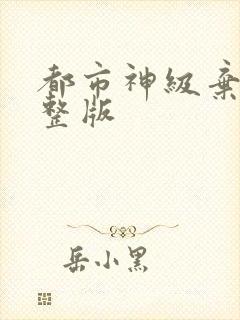 都市神级弃
整版
岳小黑